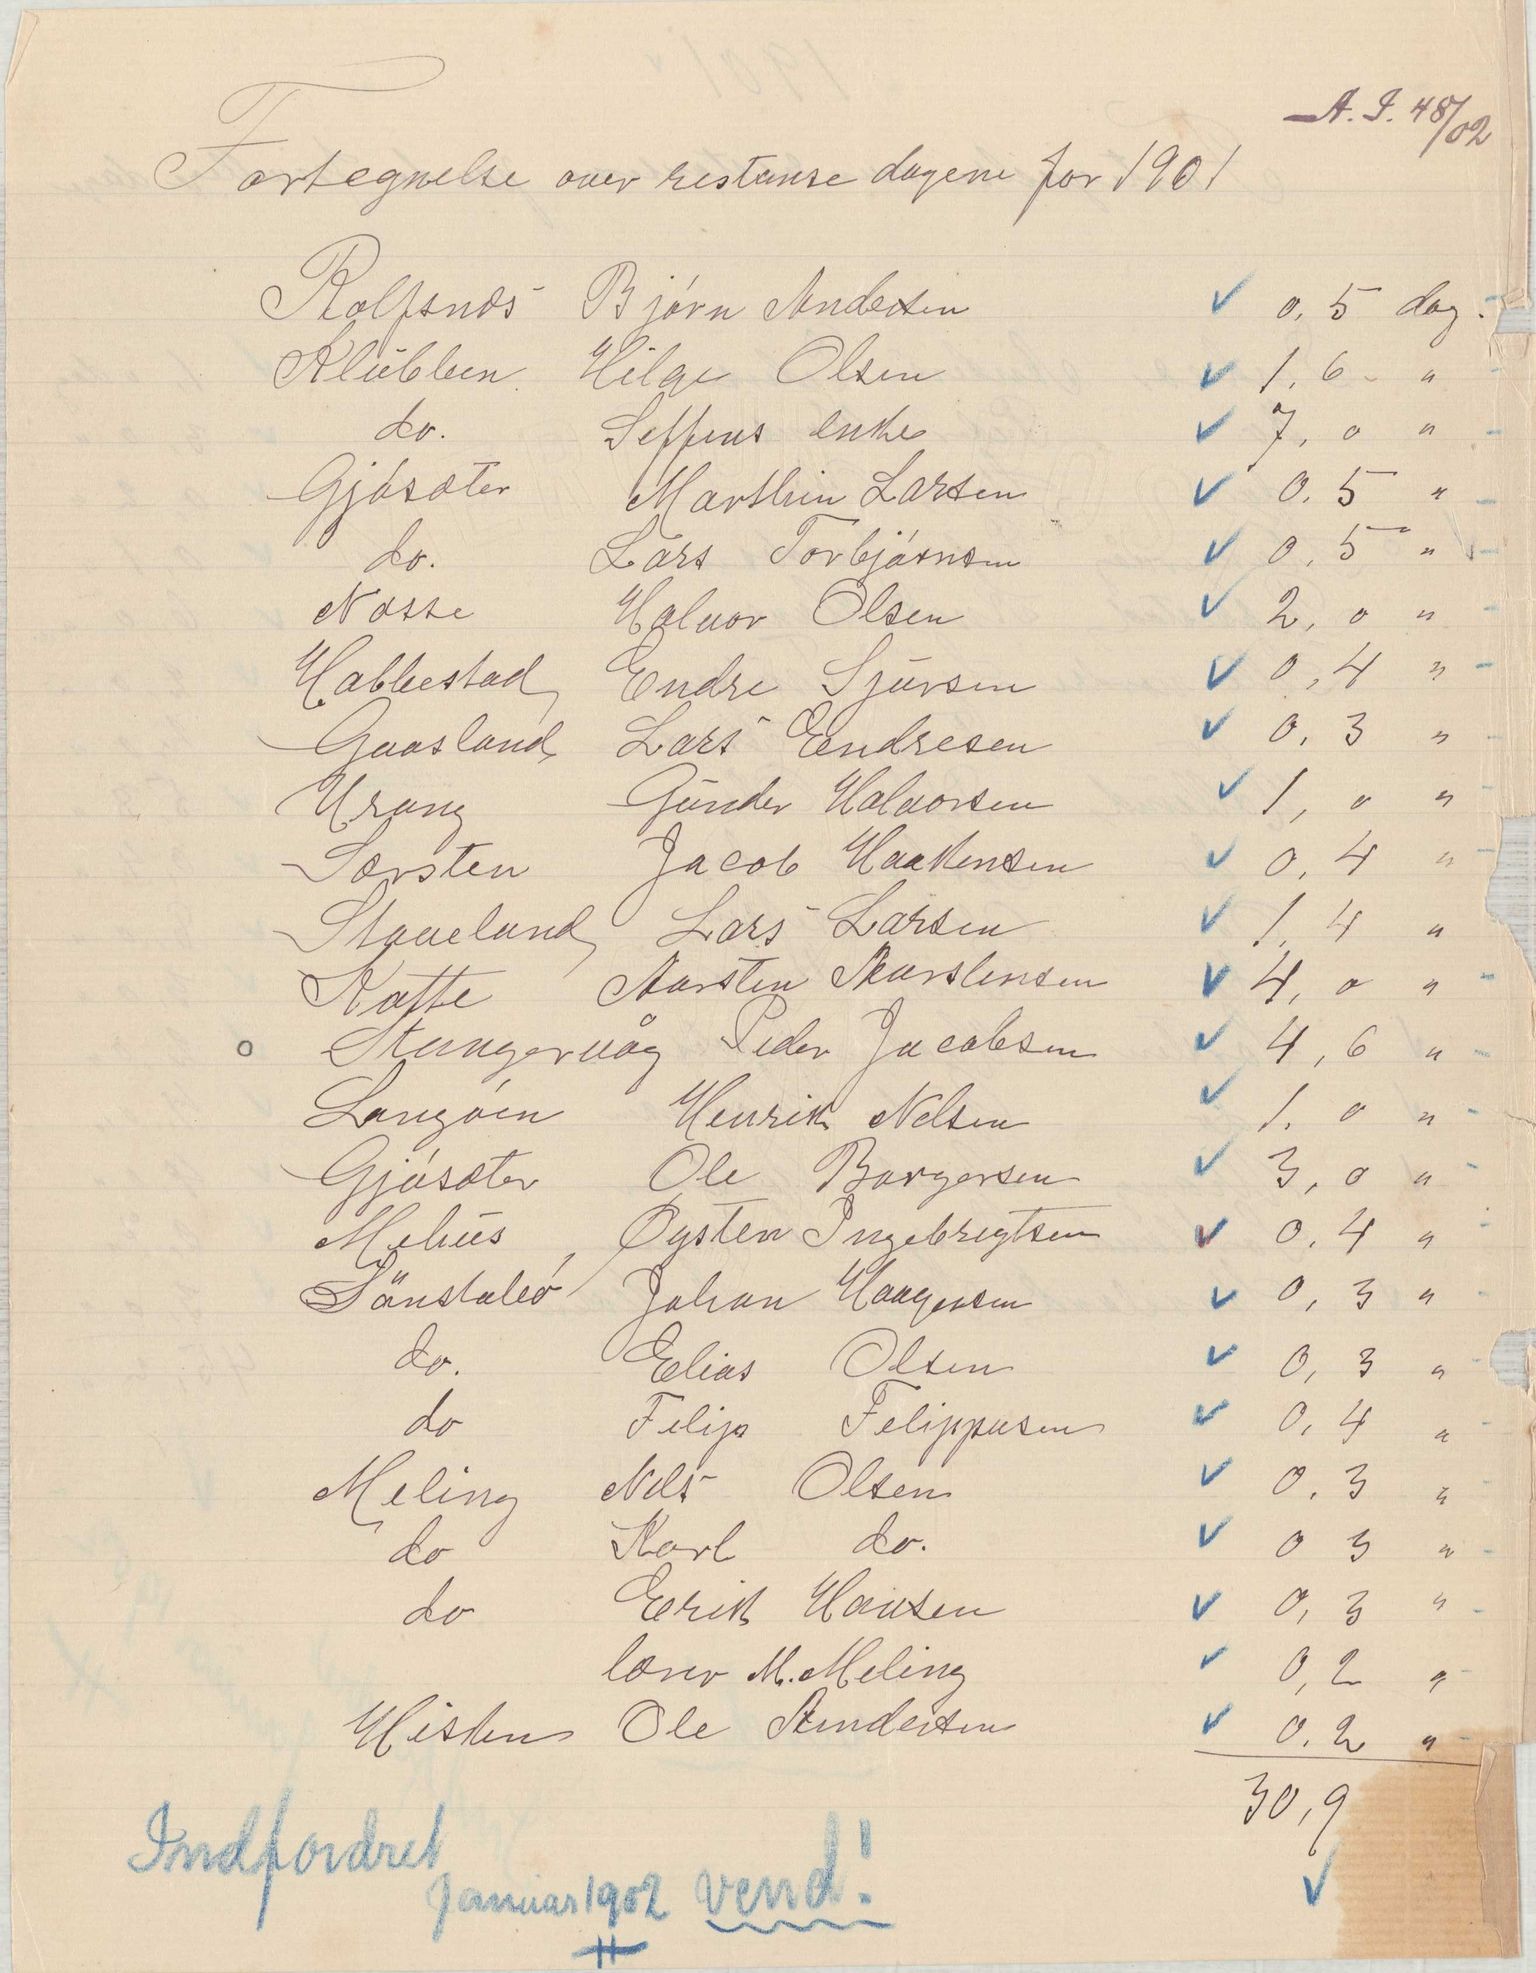 A. I. 48/02
Fortegnelse over restanse dagene for 1901
Rolfsnæs Bjørn Andersen ✓ 0,5 dag.
Klubben Hilge Olsen ✓ 1,6 "
do. Seffens enke ✓ 7,0 "
Gjøsæter Marthin Larsen ✓ 0,5 "
do. Lars Torbjørnsen ✓ 0,5 "
Næsse Halvor Olsen ✓ 2,0 "
Habbestad Endre Sjursen ✓ 0,4 "
Gaasland Lars Eendresen ✓ 0,3 "
Urang Gunder Halvorsen ✓ 1,0 "
Sørsten Jacob Haakensen ✓ 0,4 "
Staveland Lars Larsen ✓ 1,4 "
Katte Karsten Karstensen ✓ 4,0 "
o Stangervåg Peder Jacobsen ✓ 4,6 "
Langøen Henrik Nelsen ✓ 1,0 "
Gjøsæter Ole Børgersen ✓ 3,0 "
Mehus Øysten Ingebrigtsen ✓ 0,4 "
Sønstabø Johan Haagensen ✓ 0,3 "
do. Elias Olsen ✓ 0,3 "
do Felip Felippusen ✓ 0,4 "
Meling Nels Olsen ✓ 0,3 "
do Karl do. ✓ 0 3 "
do Eerik Hansen ✓ 0,3 "
lærer M. Meling ✓ 0,2 "
Histen Ole Andersen ✓ 0,2 "
30,9
✓
Indfordret
Januar 1902 vend!
H